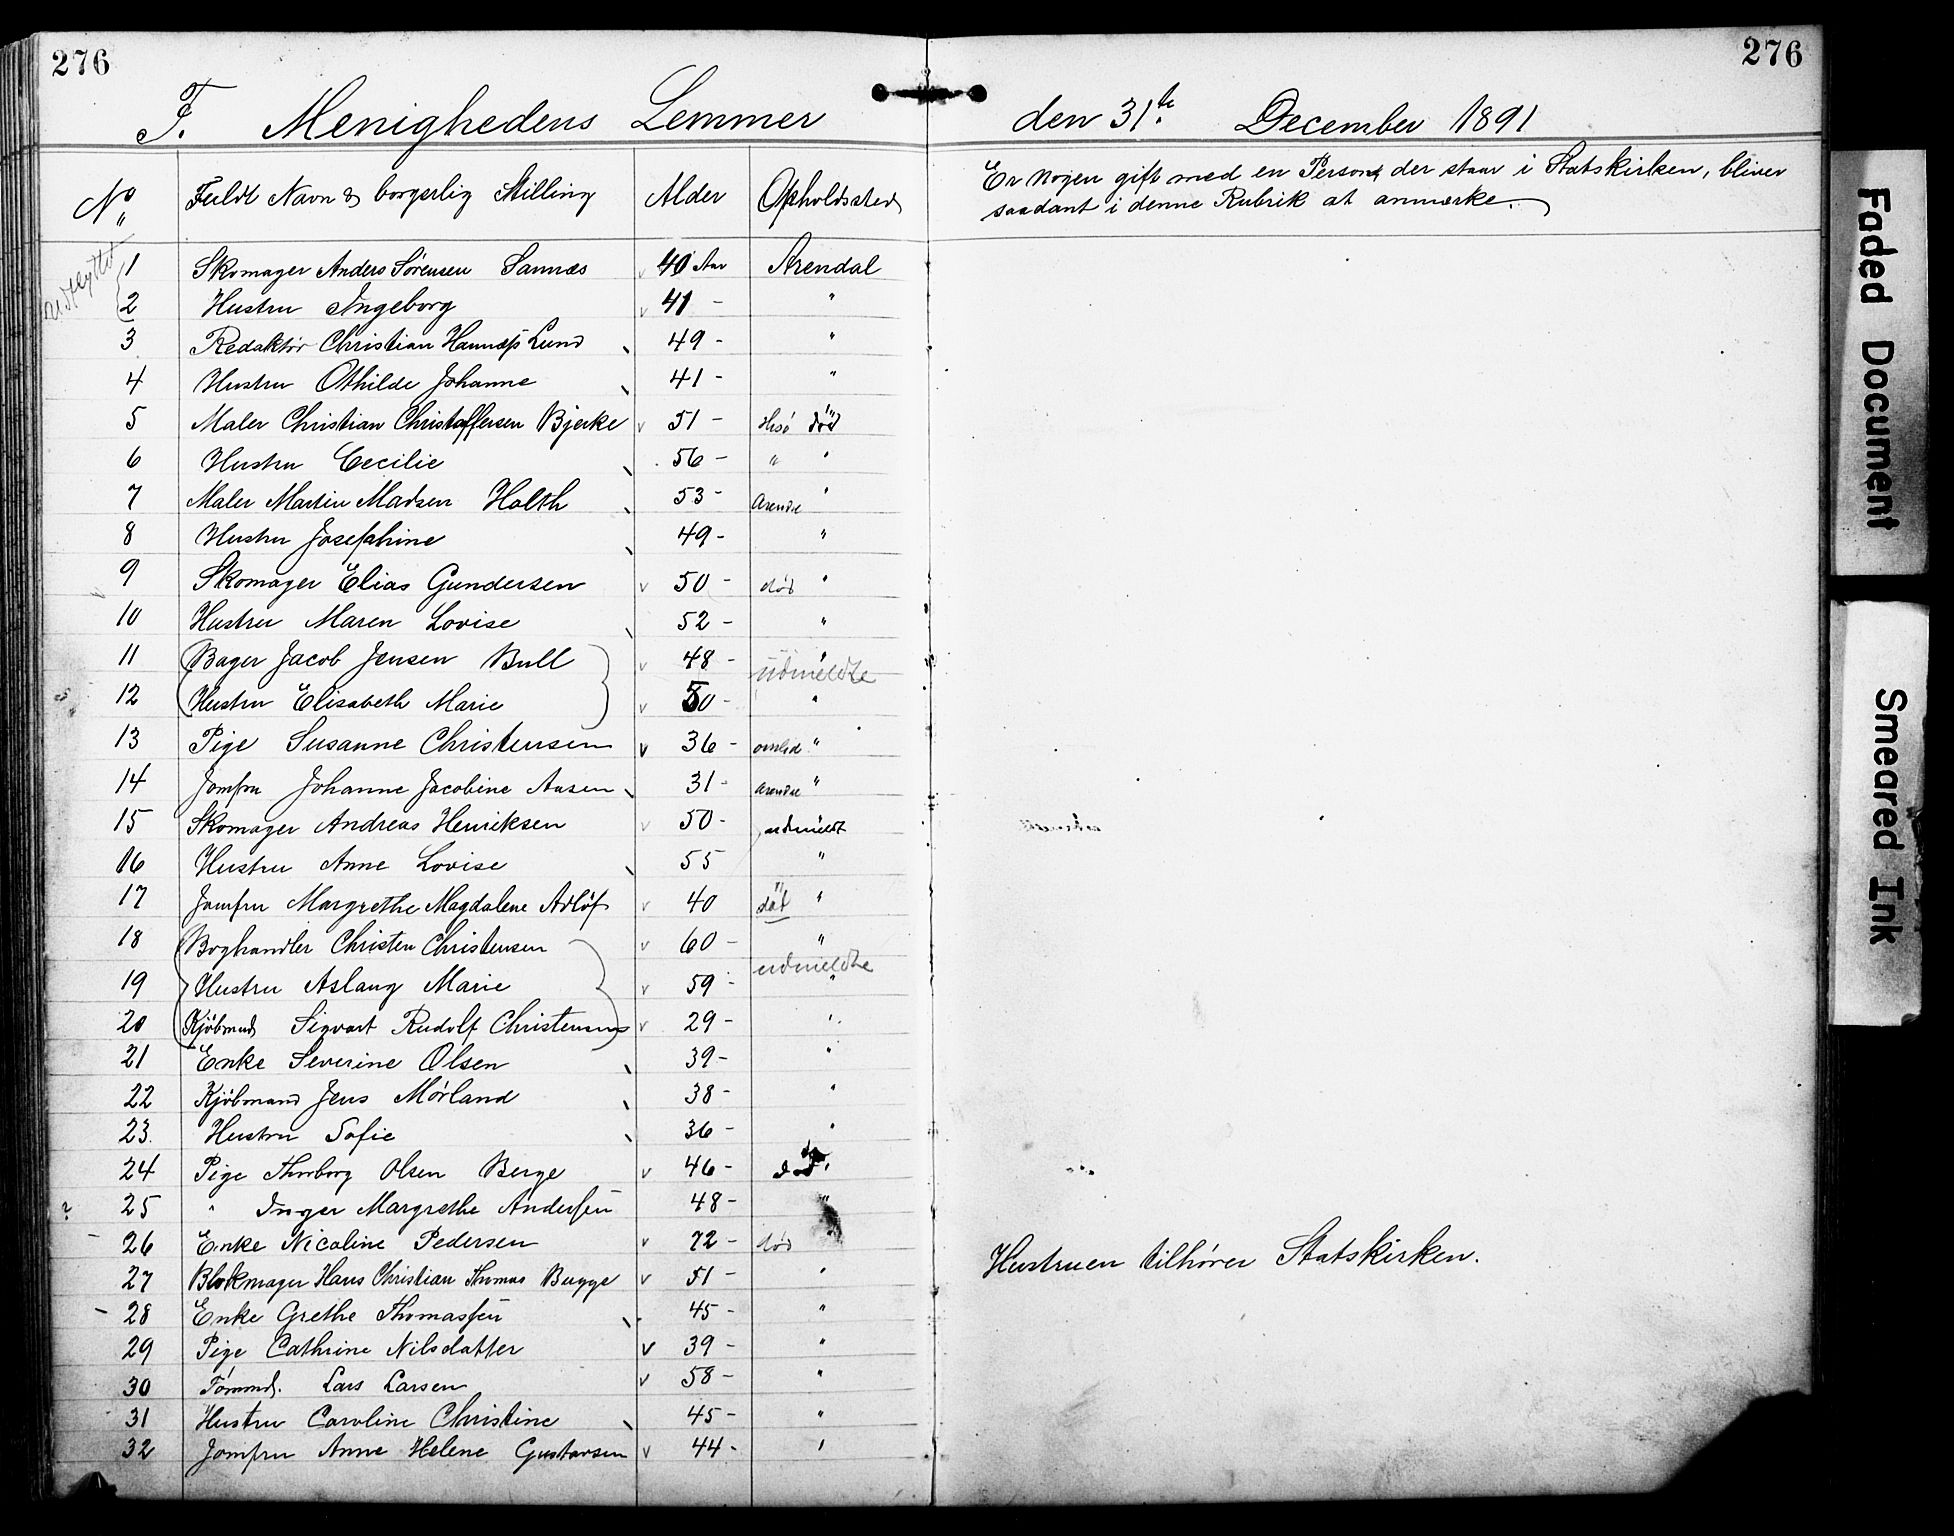 276
276
F. Menighedens Lemmer den 31te December 1891
No Fuldt Navn & borgerlig Stilling Alder Opholdssted
Er nogen gift med en Person der staar i Statskirken, bliver
saadant i denne Rubrik at anmærke.
udflyttet
1 Skomager Anders Sørensen Sannæs v 40 Aar Arendal
2 Hustru Ingeborg v 41 - "
3 Redaktør Christian Lund 49 - "
4 Hustru Othilde Johanne 41 - "
5 Maler Christian Christoffersen Bjerke v 51 - Hisø død
6 Hustru Cecilie 56 - " "
7 Maler Martin Madsen Holth 53 - "
8 Hustru Josephine 49 - "
9 Skomager Elias Gundersen v 50 - død "
10 Hustru Maren Lovise 52 - "
11 Bager Jacob Jensen Bull v 48 - "
udmeldte
12 Hustru Elisabeth Marie v 50 - "
13 Pige Susanne Christensen v 36 - "
14 Jomfru Johanne Jacobine Aasen 31 - "
15 Skomager Andreas Henriksen v 50 - udmeldt
16 Hustru Anne Lovise 55 "
17 Jomfru Margrethe Magdalene Adløf v 40 "
18 Boghandler Christen Christensen v 60 - "
udmeldte
19 Hustru Aslaug Marie v 59 - "
20 Kjøbmand Sigvart Rudolf Christensen v 29 - "
21 Enke Severine Olsen 39 - "
22 Kjøbmand Jens Mørland 38 - "
23 Hustru Sofie 36 - "
24 Pige Thorborg Olsen Berge v 46 - død "
? 25 " Inger Margrethe Andersen 48 - "
- 26 Enke Nicoline Pedersen v 72 - død
27 Blokmager Hans Christian Thomas Bugge v 51 - " Hustruen tilhører Statskirken.
- 28 Enke Grethe Thomassen 45 - "
29 Pige Cathrine Nilsdatter v 39 - "
30 Tømmd. Lars Larsen v 58 - "
31 Hustru Caroline Christine 45 - "
32 Jomfru Anne Helene Gustavsen v 44 - "
Faded Document
Smeared Ink